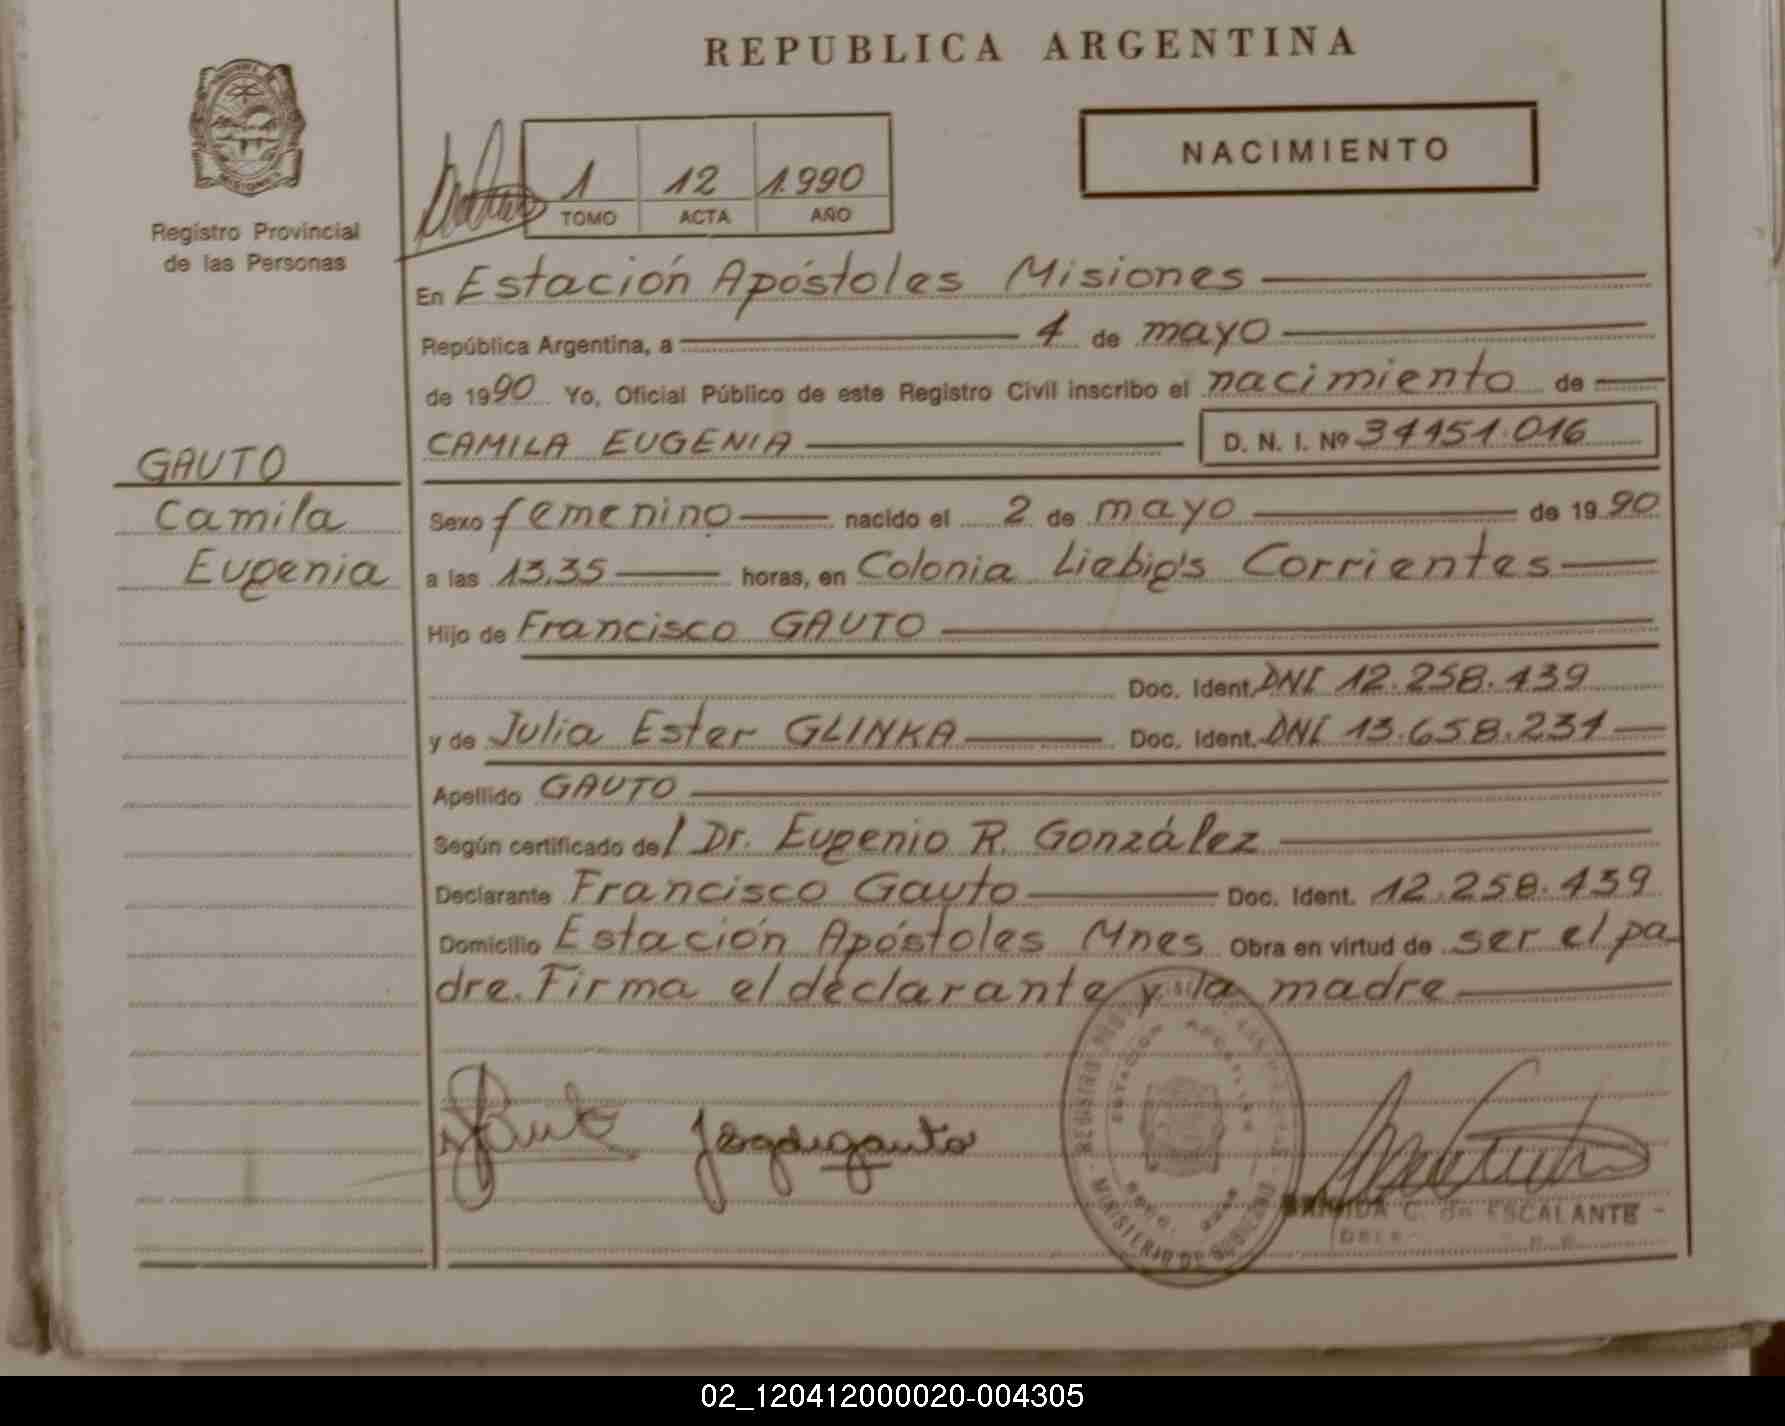 REPUBLICA ARGENTINA
NACIMIENTO
1 12 1.990
TOMO ACTA AÑO
Registro Provincial
de las Personas
En Estación Apóstoles Misiones
República Argentina, a 4 de mayo
de 1990 Yo, Oficial Público de este Registro Civil inscribo el nacimiento de
CAMILA EUGENIA D. N. I. Nº 34451.016
GAUTO
Camila
Eugenia
Sexo femenino nacido el 2 de mayo de 1990
a las 13,35 horas, en Colonia Liebig's Corrientes
Hijo de Francisco GAUTO
Doc. Ident. DNI 12.258.439
y de Julia Ester GLINKA Doc. Ident. DNI 13.658.234
Apellido GAUTO
Según certificado del Dr. Eugenio R. González
Declarante Francisco Gauto Doc. Ident. 12.258.439
Domicilio Estación Apóstoles Mnes Obra en virtud de ser el pa-
dre. Firma el declarante y la madre
MINISTERIO DE GOBIERNO
C. de ESCALANTE
02_120412000020-004305